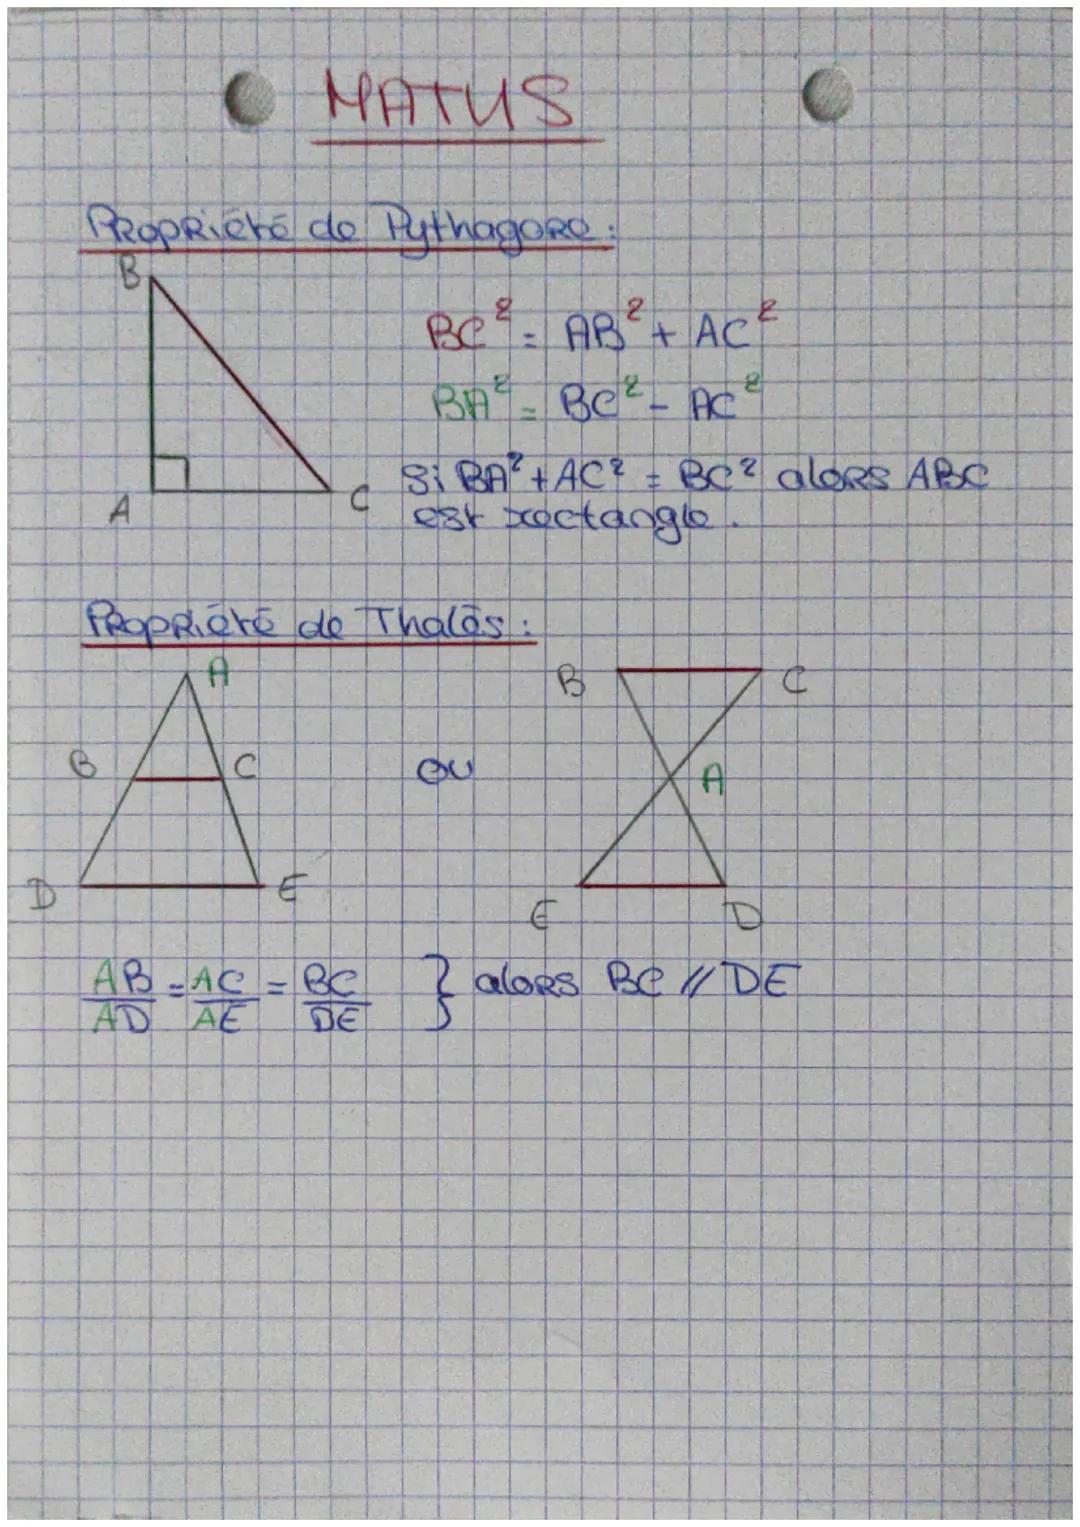 MATHS
Propriété de Pythagore :
B
A
C
BC² = AB² + AC²
BA² = BC² - AC²
Si BA² + AC² = BC² alors ABC
est rectangle.
Propriété de Thalès :
A
B
C
D
E
ou
B
C
A
E
D
AB/AD = AC/AE = BC/DE } alors BC // DE